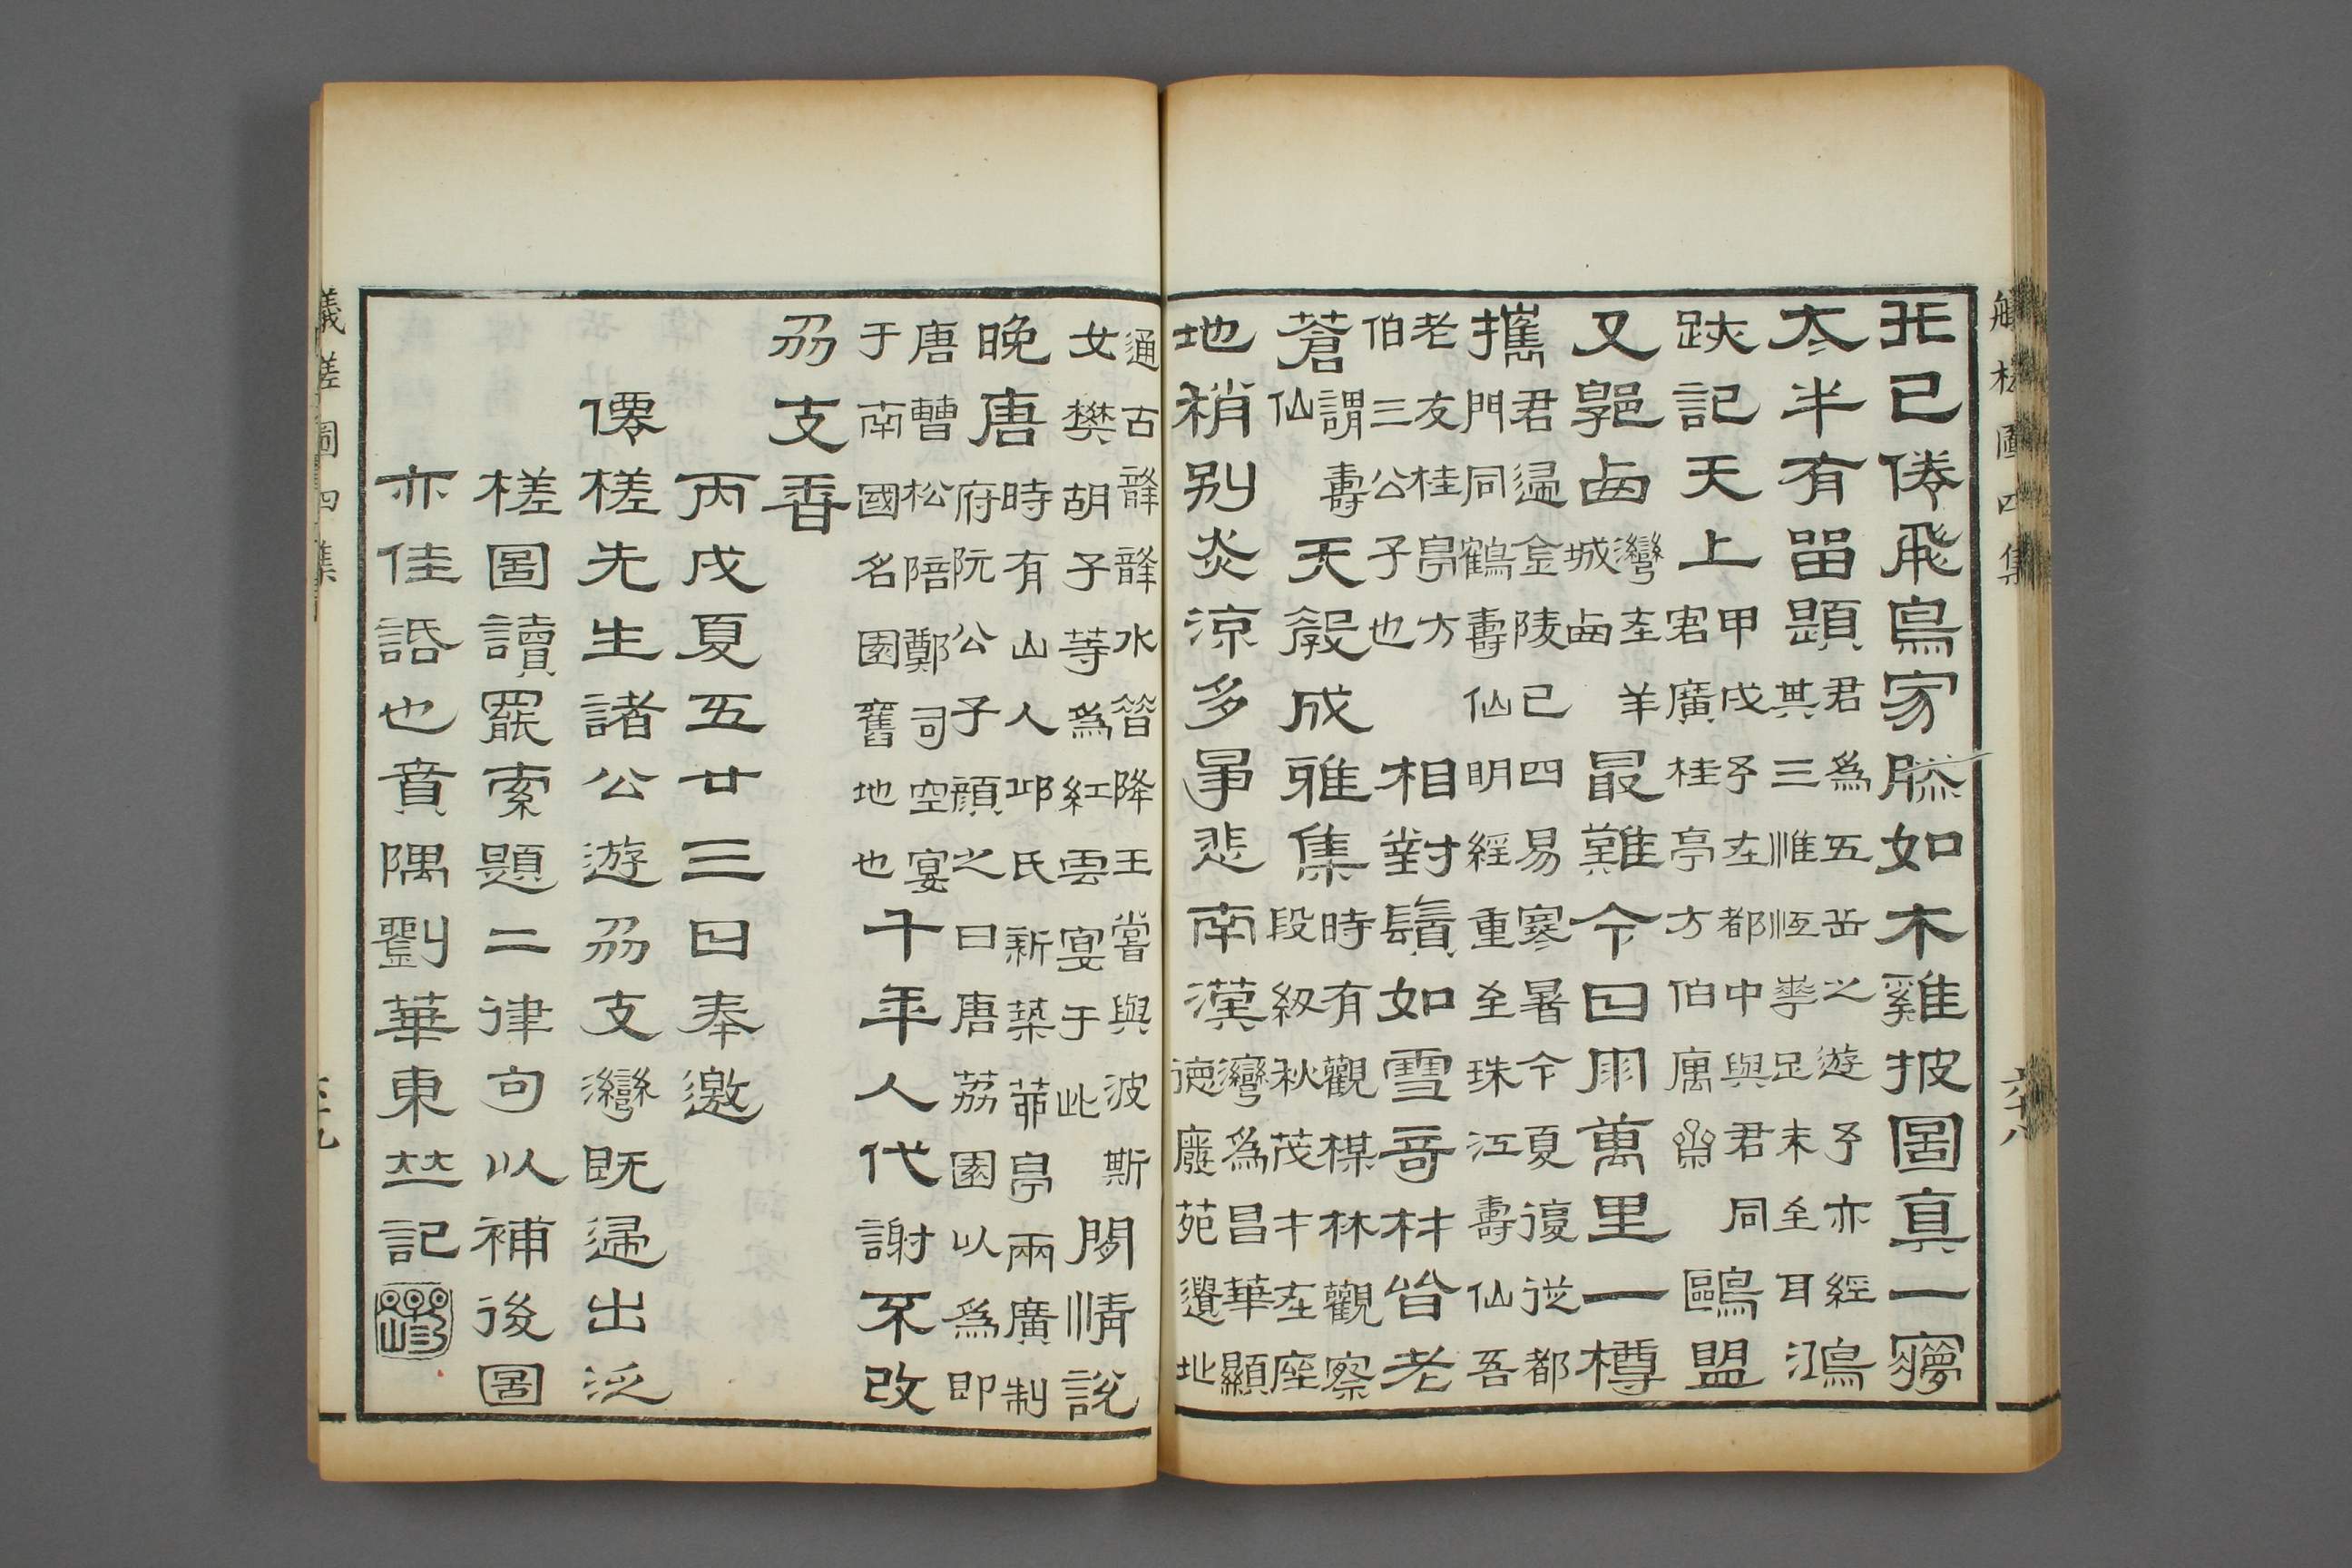 已倦飛鳥家勝如木雞披圖真一夢
太半有留題君為五岳之遊予亦經其三惟恆華足未至耳鴻
跡記天上甲戌予在都中與君同客廣桂亭方伯寓齋鷗盟
又郭西灣在羊城西最難今日雨萬里一樽
攜君還金陵已四易寒暑今夏復從都門同鶴壽仙明經重至珠江壽仙吾
老友桂亭方伯三公子也相對鬚如雪奇材皆老
蒼謂壽仙天教成雅集時有觀楳林觀察段紉秋茂才在座
地稍別炎涼多爭悲南漢灣為昌華顯德廢苑遺址
通古水降王嘗與波斯女樊胡子等為紅雲宴于此閒情說
晚唐時有山人邱氏新築茆亭兩廣制府阮公子顏之曰唐荔園以為即
唐曹松陪鄭司空宴于南國名園舊地也千年人代謝不改
荔支香
丙戌夏五廿三日奉邀
僊槎先生諸公遊荔支灣既還出泛
槎圖讀罷索題二律句以補後圖
亦佳話也賁隅劉華東竝記
槎圖四集
六十八
槎圖四集
六十九